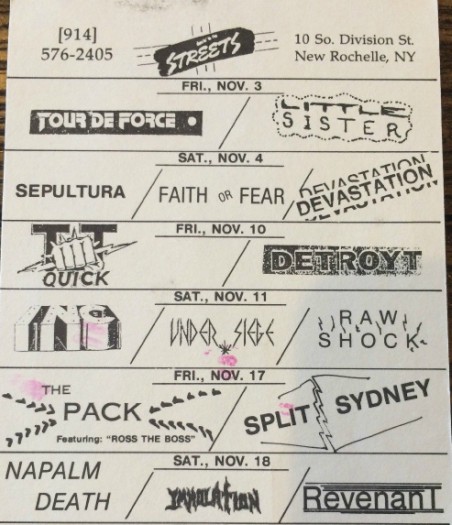 [914]
576-2405
STREETS
10 So. Division St.
New Rochelle, NY
FRI., NOV. 3
TOUR DE FORCE
LITTLE
SISTER
SAT., NOV. 4
SEPULTURA
FAITH OR FEAR
DEVASTATION
DEVASTATION
DEVASTATION
FRI., NOV. 10
TT
QUICK
DETROYT
SAT., NOV. 11
INC
UNDER SIEGE
RAW
SHOCK
FRI., NOV. 17
THE
PACK
Featuring: "ROSS THE BOSS"
SPLIT SYDNEY
SAT., NOV. 18
NAPALM
DEATH
IMMOLATION
RevenanT